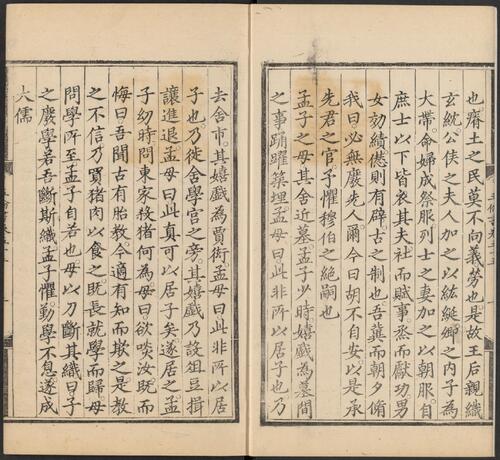 也瘠土之民莫不向義勞也是故王后親織
玄紞。公侯之夫人加之以紘綖。卿之内子為
大帶。命婦成祭服。列士之妻加之以朝服。自
庶士以下皆衣其夫。社而賦事。烝而獻功。男
女効績。愆則有辟。古之制也。吾冀而朝夕脩
我曰必無廢先人。爾今曰胡不自安。以是承
先君之官。予懼穆伯之絶嗣也
孟子之母。其舍近墓。孟子少時嬉戲為墓間
之事。踊躍築埋。孟母曰此非所以居子也。乃
去舍市。其嬉戲為賈衒。孟母曰此非所以居
子也。乃徙舍學宫之旁。其嬉戲乃設俎豆揖
讓進退。孟母曰此真可以居子矣。遂居之。孟
子幼時問東家殺猪何為。母曰欲啖汝。既而
悔曰吾聞古有胎教。今適有知而欺之。是教
之不信。乃買猪肉以食之。既長就學而歸。母
問學所至。孟子自若也。母以刀斷其織曰子
之廢學若吾斷斯織。孟子懼。勤學不息。遂成
大儒